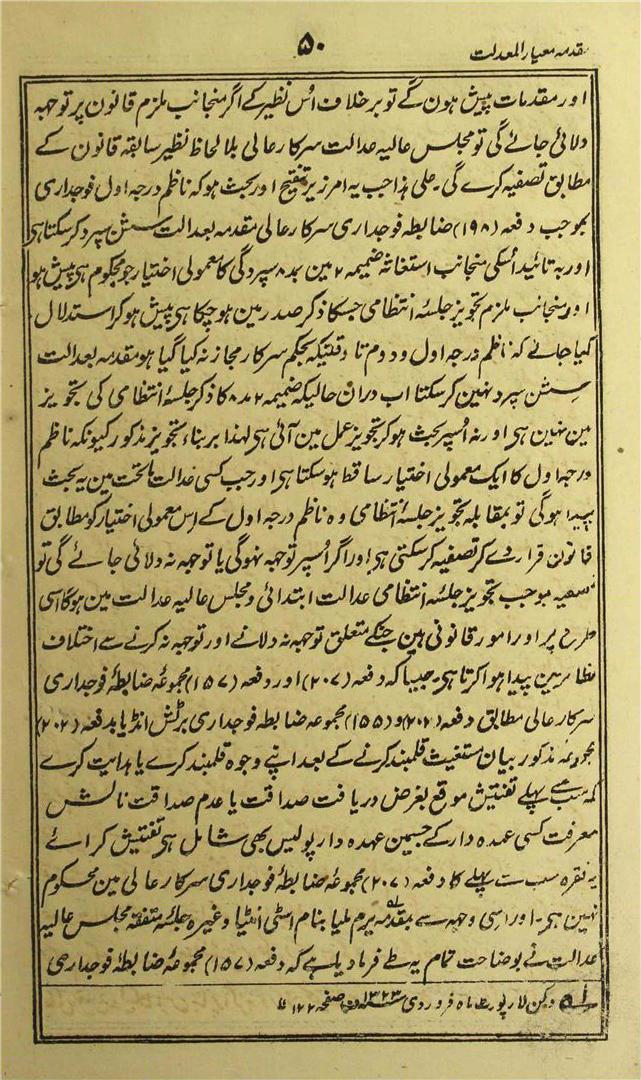 مقدمہ معیار المعدلت
۵۰
اور مقدمات پیش ہون گے تو برخلاف اُس نظیر کے اگر منجانب ملزم قانون پر توجہہ
دلائی جائے گی تو مجلس عالیہ عدالت سرکار عالی بلا لحاظ نظیر سابقہ قانون کے
مطابق تصفیہ کرے گی۔ علی ہذا جب یہ امر زیر تنقیح اور بحث ہو کہ ناظم درجہ اول فوجداری
بموجب دفعہ (۱۹۸) ضابطہ فوجداری سرکار عالی مقدمہ بعدالت سشن سپرد کر سکتا ہی
اور بہ تائید اُسکی منجانب استغاثہ ضمیمہ ۲ مین بد ۸ سپردگی کا معمولی اختیار جو محکوم ہی پیش ہو
اور منجانب ملزم تجویز جلسۂ انتظامی جسکا ذکر صدر مین ہو چکا ہی پیش ہو کر استدلال
کیا جائے کہ ناظم درجہ اول و دوم تا وقتیکہ بحکم سرکار مجاز نہ کیا گیا ہو مقدمہ بعدالت
سشن سپرد نہین کر سکتا اب دران حالیکہ ضمیمہ ۲ مد ۸ کا ذکر جلسۂ انتظامی کی تجویز
مین نہین ہی اور نہ اُسپر بحث ہو کر تجویز عمل مین آئی ہی لہذا بر بناء تجویز مذکور کیونکہ ناظم
درجہ اول کا ایک معمولی اختیار ساقط ہو سکتا ہی اور جب کسی عدالت ماتحت مین یہ بحث
پیدا ہو گی تو بمقابلہ تجویز جلسۂ انتظامی وہ ناظم درجہ اول کے اس معمولی اختیار کو مطابق
قانون قرار دے کر تصفیہ کر سکتی ہی اور اگر اُسپر توجہہ نہو گی یا توجہہ نہ دلائی جائے گی تو
تصفیہ بموجب تجویز جلسۂ انتظامی عدالت ابتدائی و مجلس عالیہ عدالت مین ہو گا اسی
طرح پر اور امور قانونی ہین جنکے متعلق توجہہ نہ دلانے اور توجہہ نہ کرنے سے اختلاف
نظایر مین پیدا ہوا کرتا ہی۔ جیسا کہ دفعہ (۲۰۷) اور دفعہ (۱۵۷) مجموعہ ضابطۂ فوجداری
سرکار عالی مطابق دفعہ (۲۰۲) و (۱۵۵) مجموعہ ضابطہ فوجداری برٹش انڈیا بدفعہ (۲۰۲)
مجموعۂ مذکور بیان مستغیث قلمبند کرنے کے بعد اپنے وجوہ قلمبند کرے یا ہدایت کرے
کہ سب سے پہلے تفتیش موقع بغرض دریافت صداقت یا عدم صداقت نالش
معرفت کسی عہدہ دار کے جسمین عہدہ دار پولیس بھی شامل ہی تفتیش کرائے
یہ فقرہ سب سے پہلے کا دفعہ (۲۰۷) مجموعہ ضابطۂ فوجداری سرکار عالی مین محکوم
نہین ہی۔ اور اسی وجہہ سے مقدمہ پرم ملیا بنام اسٹی انٹیا وغیرہ جلسۂ متفقہ مجلس عالیہ
عدالت نے بوضاحت تمام یہ طے فرما دیا ہے کہ دفعہ (۱۵۷) مجموعہ ضابطۂ فوجداری
دکن لا رپورٹ ماہ فروردی ۱۳۲۳ صفحہ ۱۲۲